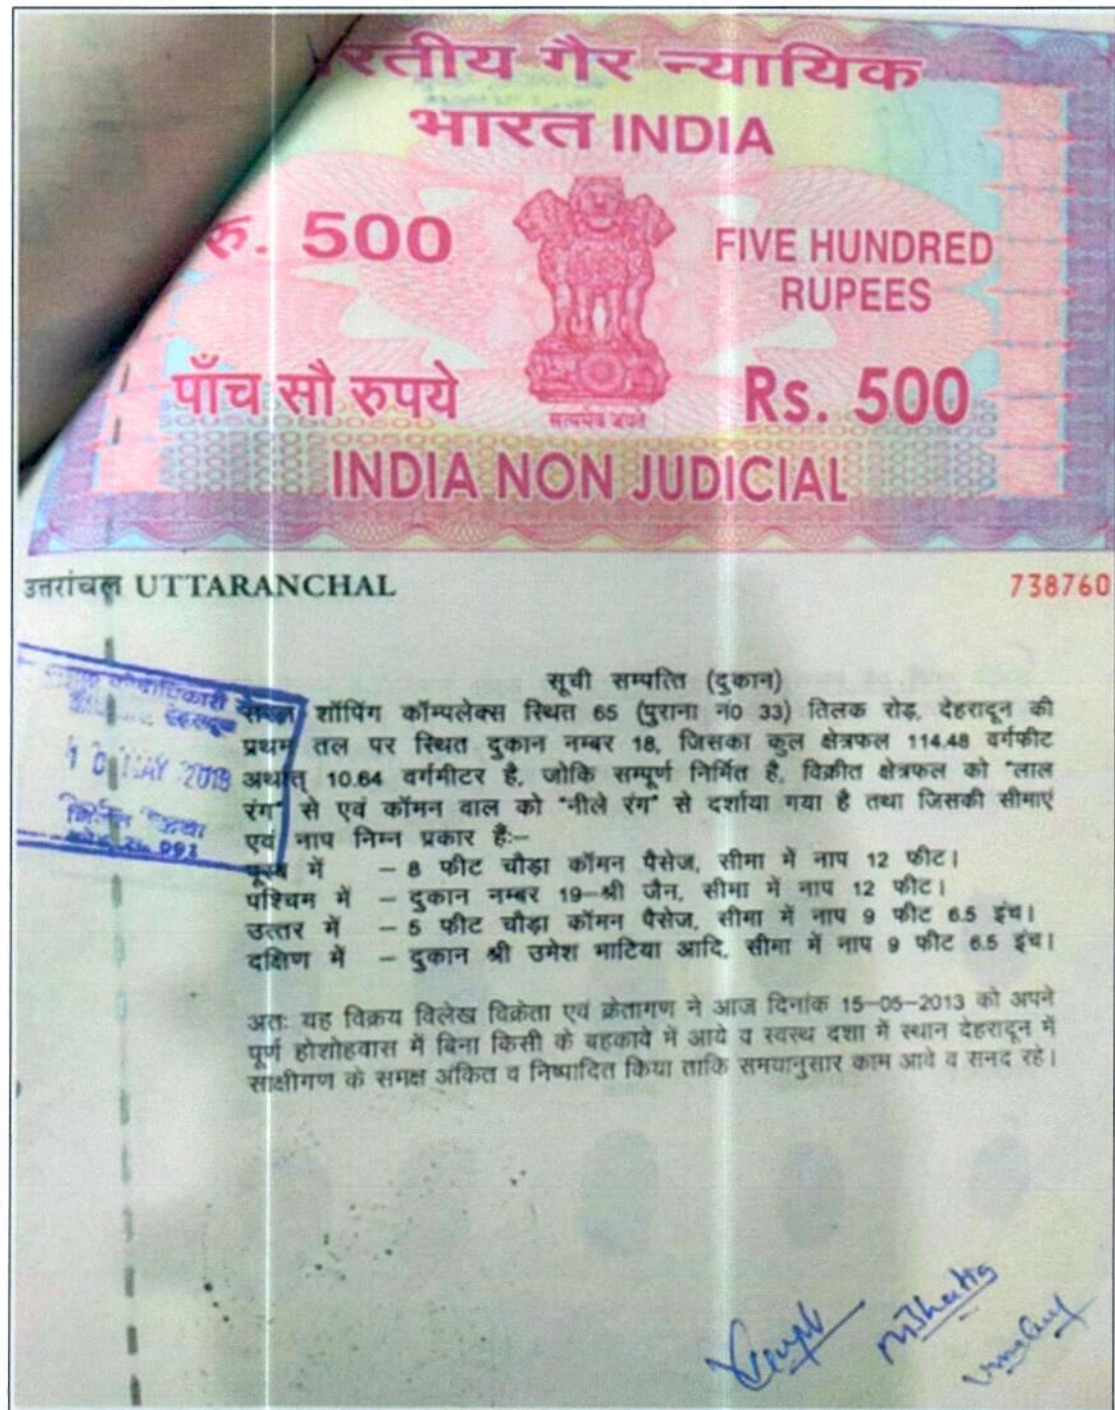 रतीय गैर न्यायिक
भारत INDIA
रु. 500
FIVE HUNDRED
RUPEES
पाँच सौ रुपये
सत्यमेव जयते
Rs. 500
INDIA NON JUDICIAL
उत्तरांचल UTTARANCHAL
738760
देहरादून
10 MAY 2013
सूची सम्पत्ति (दुकान)
शॉपिंग कॉम्पलेक्स स्थित 65 (पुराना नं0 33) तिलक रोड़, देहरादून की
प्रथम तल पर स्थित दुकान नम्बर 18, जिसका कुल क्षेत्रफल 114.48 वर्गफीट
अर्थात् 10.64 वर्गमीटर है, जोकि सम्पूर्ण निर्मित है, विक्रीत क्षेत्रफल को "लाल
रंग" से एवं कॉमन वाल को "नीले रंग" से दर्शाया गया है तथा जिसकी सीमाएं
एवं नाप निम्न प्रकार हैं:–
पूरब में – 8 फीट चौड़ा कॉमन पैसेज, सीमा में नाप 12 फीट।
पश्चिम में – दुकान नम्बर 19–श्री जैन, सीमा में नाप 12 फीट।
उत्तर में – 5 फीट चौड़ा कॉमन पैसेज, सीमा में नाप 9 फीट 6.5 इंच।
दक्षिण में – दुकान श्री उमेश भाटिया आदि, सीमा में नाप 9 फीट 6.5 इंच।
अतः यह विक्रय विलेख विक्रेता एवं क्रेतागण ने आज दिनांक 15–05–2013 को अपने
पूर्ण होशोहवास में बिना किसी के बहकावे में आये व स्वस्थ दशा में स्थान देहरादून में
साक्षीगण के समक्ष अंकित व निष्पादित किया ताकि समयानुसार काम आवे व सनद रहे।